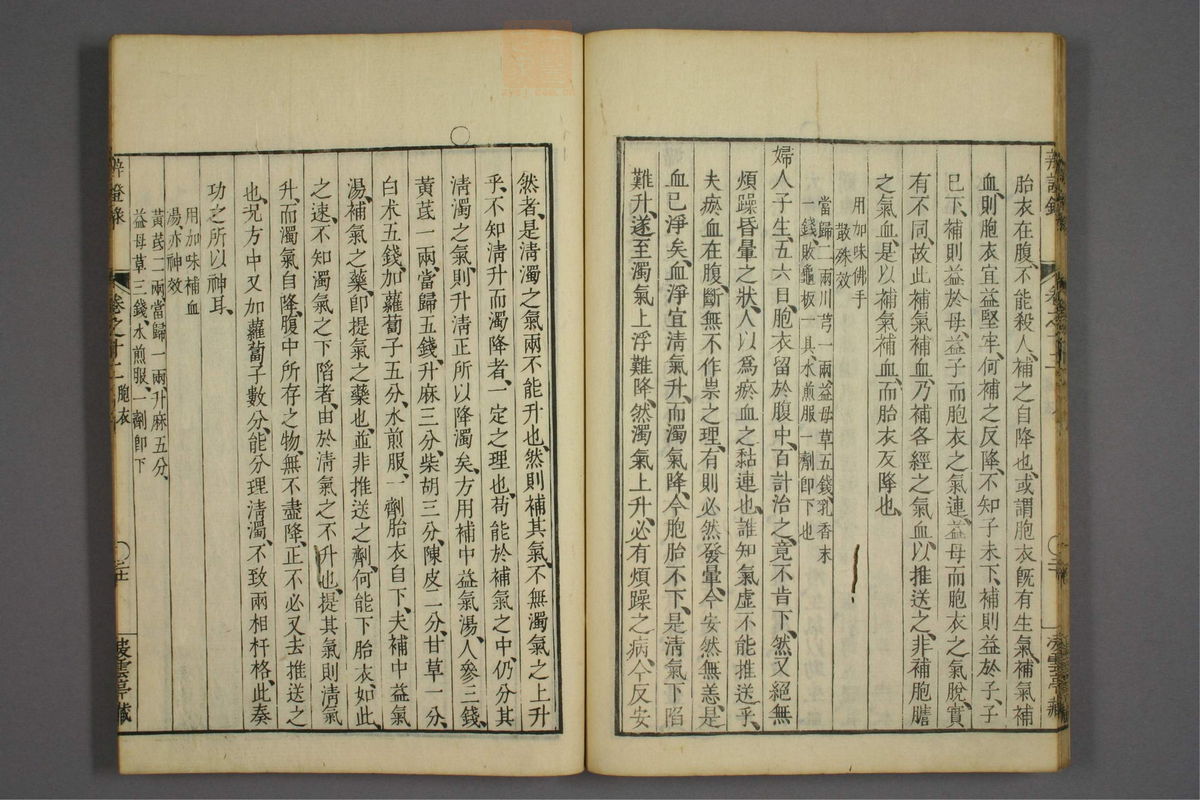 胎衣在腹不能殺人、補之自降也、或謂胞衣旣有生氣、補氣補
血、則胞衣宜益堅牢、何補之反降、不知子未下、補則益於子、子
已下、補則益於母、益子而胞衣之氣連、益母而胞衣之氣脫、實
有不同、故此補氣補血、乃補各經之氣血、以推送之、非補胞膳
之氣血、是以補氣補血、而胎衣反降也、
用加味佛手
散殊效
當歸二兩川芎一兩益母草五錢、乳香末
一錢、敗龜板一具、水煎服一劑卽下也
婦人子生、五六日、胞衣留於腹中、百計治之、竟不肯下、然又絕無
煩躁昏暈之狀、人以爲瘀血之黏連也、誰知氣虛不能推送乎、
夫瘀血在腹、斷無不作祟之理、有則必然發暈、今安然無恙、是
血已淨矣、血淨宜清氣升、而濁氣降、今胞胎不下、是清氣下陷
難升、遂至濁氣上浮難降、然濁氣上升、必有煩躁之病、今反安
然者、是清濁之氣兩不能升也、然則補其氣、不無濁氣之上升
乎、不知清升而濁降者、一定之理也、苟能於補氣之中、仍分其
清濁之氣、則升清正所以降濁矣、方用補中益氣湯、人參三錢、
黃芪一兩、當歸五錢、升麻三分、柴胡三分、陳皮二分、甘草一分、
白术五錢、加蘿蔔子五分、水煎服、一劑胎衣自下、夫補中益氣
湯、補氣之藥、卽提氣之藥也、並非推送之劑、何能下胎衣如此
之速、不知濁氣之下陷者、由於清氣之不升也、提其氣則清氣
升、而濁氣自降、腹中所存之物、無不盡降、正不必又去推送之
也、况方中又加蘿蔔子數分、能分理清濁、不致兩相杆格、此奏
功之所以神耳、
用加味補血
湯、亦神效
黃芪二兩、當歸一兩、升麻五分、
益母草三錢、水煎服、一劑卽下
辨證錄
卷之十二
胞衣